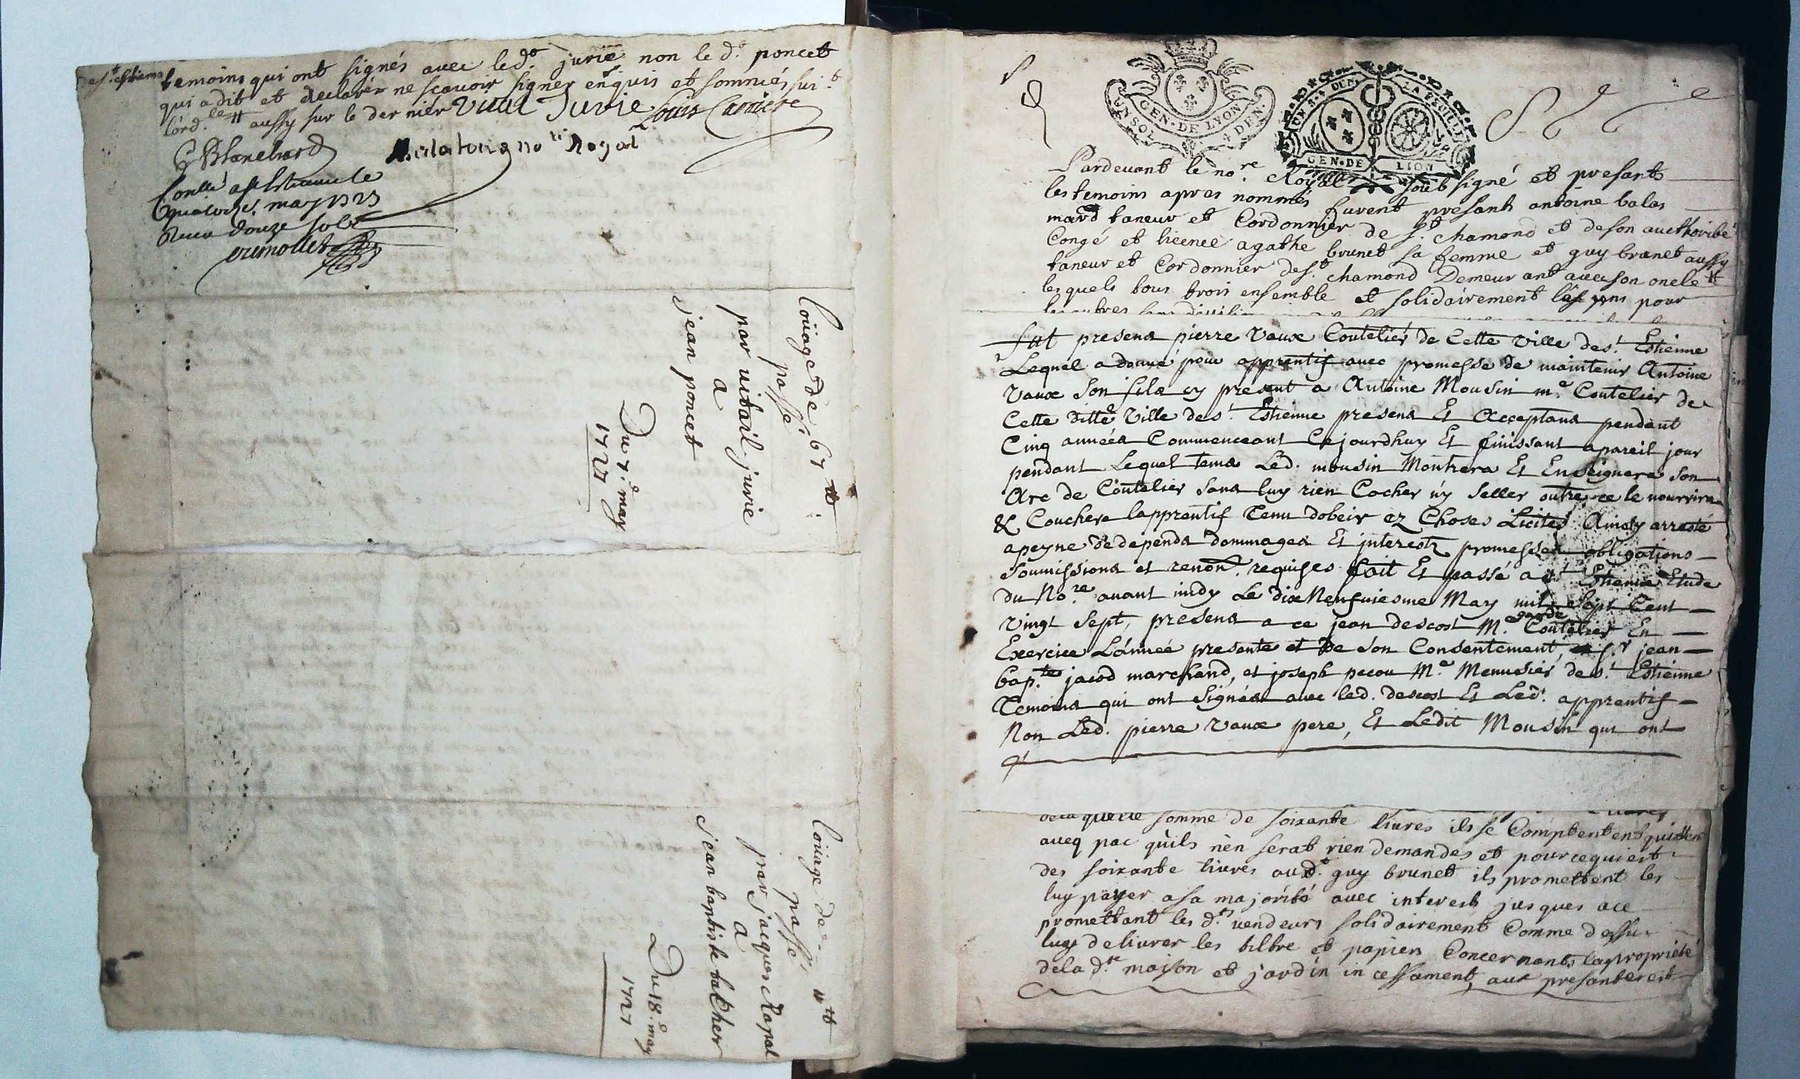 temoins qui ont signés avec led.t jurie non le d.t poncet
qui a dit et declarer ne scavoir signer enquis et sommés sui.t
lord.ce aussy sur le dernier Vital Jurie Louis Carriere
G Blanchard
not.re Royal
Conllé a St Etienne le
quatorze may 1727
Receu douze sols
louage de 67 tt
passé
par vitail jurie
a
jean poncet
Du 7.e may
1727
louage de
passé
par jacques Rapal
a
jean baptiste
Du 18.e may
1727
GEN. DE LYON
GEN. DE LION
Pardevant le no.re Royal soubsigné et presants
les temoins apres nommés furent presants antoine balas
march taneur et Cordonnier de s.t chamond et de son aucthorité
Congé et licence agathe brunet sa femme et guy brunet aussy
taneur et Cordonnier de s.t chamond Demeurant avec son oncle
lesquels tous trois ensemble et solidairement les uns pour
fut presens pierre Vaux Coutelier de Cette Ville de s.t Estienne
Lequel a donné pour apprentif avec promesse de maintenir Antoine
Vaux Son fils cy present a Antoine Mousin m.e Coutelier de
Cette ditte Ville de s.t Estienne presens Et Acceptans pendent
Cinq années Commenceant Cejourdhuy Et finissant a pareil jour
pendant Lequel tems Led. mousin Montrera Et Enseignera Son
Art de Coutelier Sans luy rien Cacher ny Seller outre ce le nourrira
& Couchera l'apprentif Tenu dobeir ez Choses Licites Ainsy arresté
a peyne de depends dommages Et interests promesses obligations
Soumissions et renon.t requises fait Et passé a s.t Estienne Etude
du No.re avant midy Le dix Neufuiesme May mil Sept Cent
Vingt Sept, presens a ce jean descost M.e garde Coutelier En
Exercice L'année presente et De son Consentement, s.r jean
bap.te jacod marchand, et joseph pecou M.e Menusier de s.t Estienne
Temoins qui ont Signés avec led. descost Et Led.t apprentif
Non Led. pierre Vaux pere, Et Ledit Mousin qui ont
somme de soixante livres ils se Comptentent quitten
aveq pac qu'ils n'en serat rien demandes et pour ce qui est
des soixante livres aud.t guy brunet ils promettent les
luy payer a sa majorité avec interest jusques a ce
promettant les d.ts vendeurs solidairement Comme dessu
luy delivrer les tiltre et papiers Concernants la propriété
de la d.te maison et jardin incessament, aux presantes est